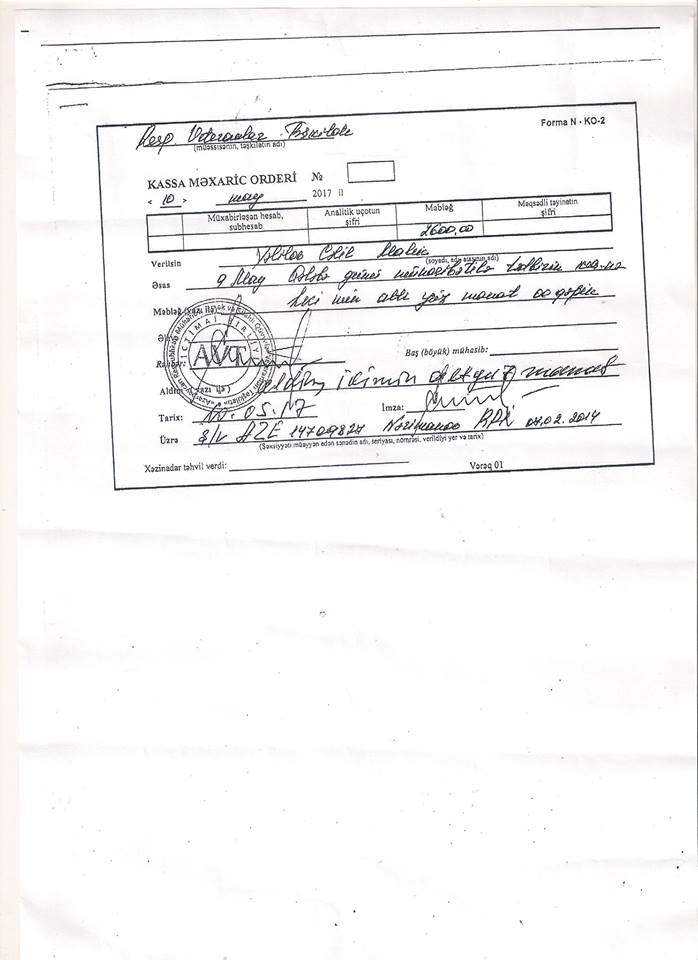 Resp. Veteranlar Təşkilatı
(müəssisənin, təşkilatın adı)
Forma N - KO-2
KASSA MƏXARİC ORDERİ №
< 10 > may 2017 il
Müxabirləşən hesab, subhesab
Analitik uçotun şifri
Məbləğ
Məqsədli təyinatın şifri
2600,00
Verilsin
(soyadı, adı, atasının adı)
Əsas 9 May Qələbə günü münasibətilə tədbirin
Məbləğ (yazı ilə) iki min altı yüz manat 00 qəpik
Rəhbər:
Baş (böyük) mühasib:
İCTİMAİ BİRLİYİ
Aldım (yazı ilə) Aldım iki min altı yüz manat
Tarix: 10.05.17 İmza:
Üzrə Ş/V AZE 14709827 Nərimanov RPİ 07.02.2014
(Şəxsiyyəti müəyyən edən sənədin adı, seriyası, nömrəsi, verildiyi yer və tarix)
Xəzinadar təhvil verdi:
Vərəq 01